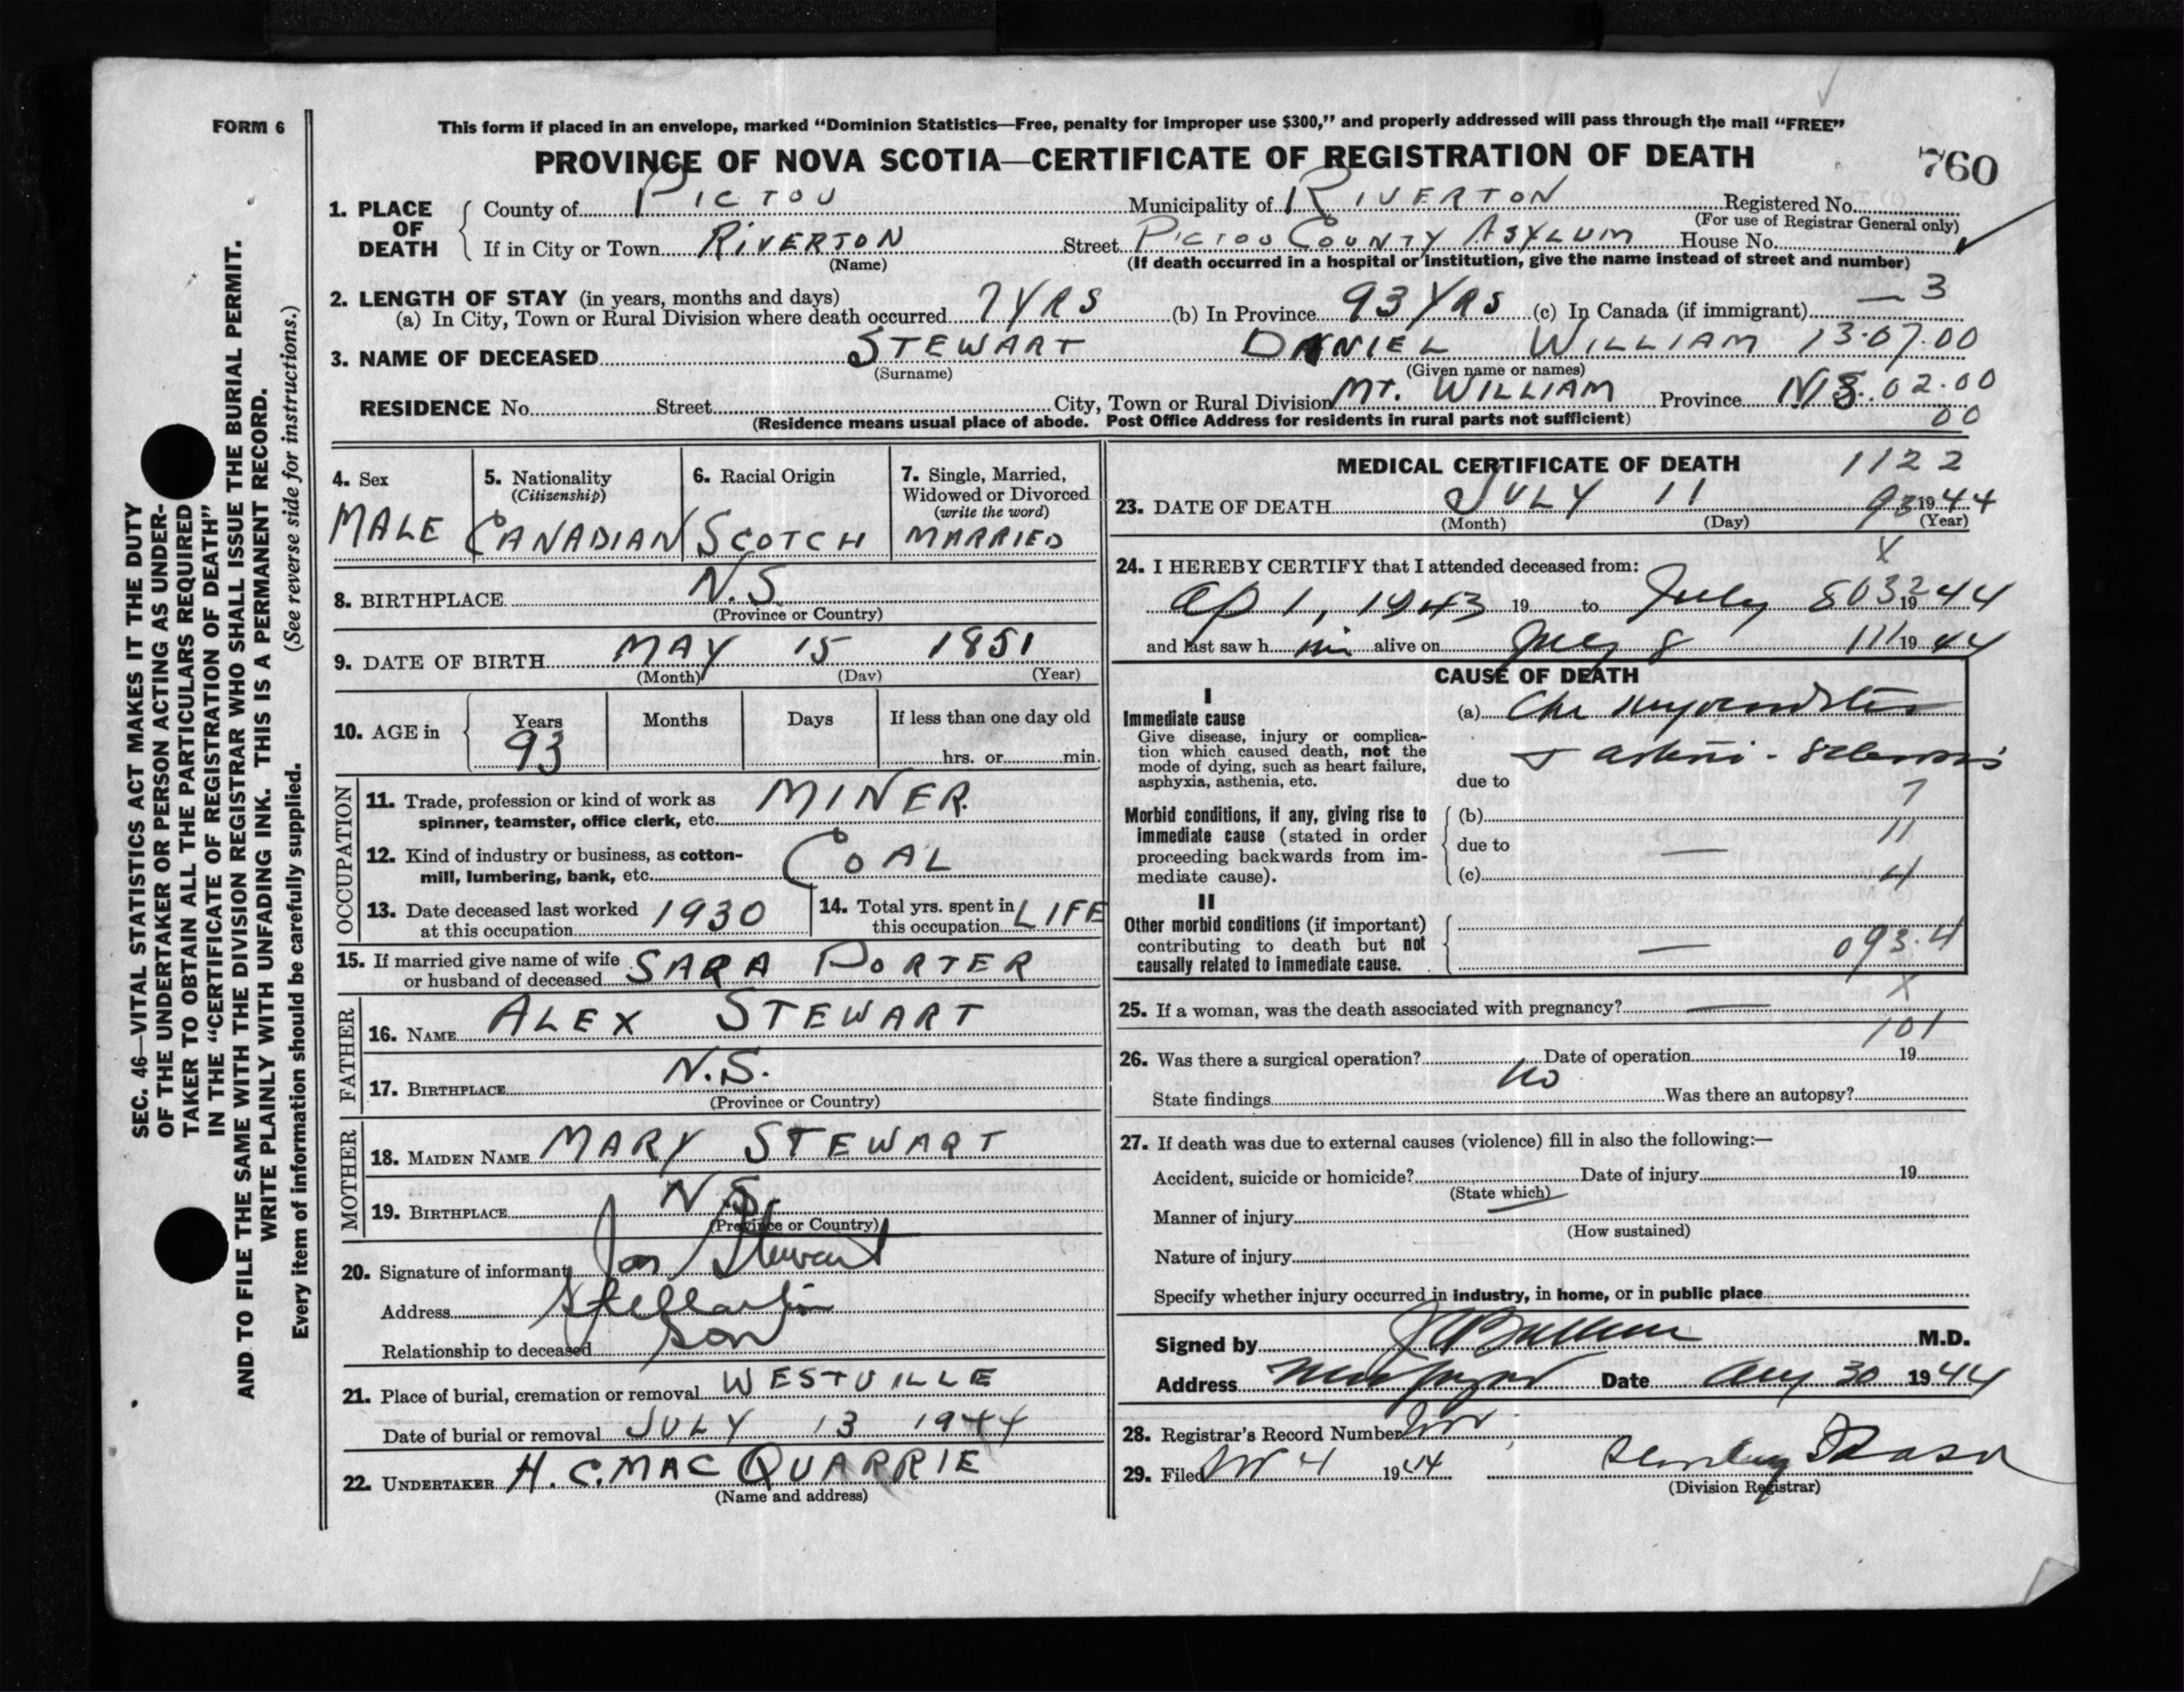 FORM 6
This form if placed in an envelope, marked “Dominion Statistics—Free, penalty for improper use $300,” and properly addressed will pass through the mail “FREE”
PROVINCE OF NOVA SCOTIA—CERTIFICATE OF REGISTRATION OF DEATH
760
1. PLACE OF DEATH
County of PICTOU Municipality of RIVERTON Registered No.
(For use of Registrar General only)
If in City or Town RIVERTON Street PICTOU COUNTY ASYLUM House No.
(Name) (If death occurred in a hospital or institution, give the name instead of street and number)
2. LENGTH OF STAY (in years, months and days)
(a) In City, Town or Rural Division where death occurred 7 YRS (b) In Province 93 YRS (c) In Canada (if immigrant) — 3
3. NAME OF DECEASED STEWART DANIEL WILLIAM 13.07.00
(Surname) (Given name or names)
RESIDENCE No. Street City, Town or Rural Division MT. WILLIAM Province N.S. 02.00
00
(Residence means usual place of abode. Post Office Address for residents in rural parts not sufficient)
4. Sex
MALE
5. Nationality
(Citizenship)
CANADIAN
6. Racial Origin
SCOTCH
7. Single, Married,
Widowed or Divorced
(write the word)
MARRIED
8. BIRTHPLACE N.S.
(Province or Country)
9. DATE OF BIRTH MAY 15 1851
(Month) (Day) (Year)
10. AGE in
Years Months Days If less than one day old
93 hrs. or min.
OCCUPATION
11. Trade, profession or kind of work as
spinner, teamster, office clerk, etc. MINER
12. Kind of industry or business, as cotton-
mill, lumbering, bank, etc. COAL
13. Date deceased last worked
at this occupation 1930
14. Total yrs. spent in
this occupation LIFE
15. If married give name of wife
or husband of deceased SARA PORTER
FATHER
16. NAME ALEX STEWART
17. BIRTHPLACE N.S.
(Province or Country)
MOTHER
18. MAIDEN NAME MARY STEWART
19. BIRTHPLACE N.S.
(Province or Country)
20. Signature of informant Stewart
Address Stellarton
Relationship to deceased Son
21. Place of burial, cremation or removal WESTVILLE
Date of burial or removal JULY 13 1944
22. UNDERTAKER H. C. MAC QUARRIE
(Name and address)
MEDICAL CERTIFICATE OF DEATH 1122
23. DATE OF DEATH JULY 11 93 1944
(Month) (Day) (Year)
X
24. I HEREBY CERTIFY that I attended deceased from:
Ap 1, 1943 19 to July 8 032 19 44
and last saw h im alive on July 8 111 19 44
CAUSE OF DEATH
I
Immediate cause
Give disease, injury or complica-
tion which caused death, not the
mode of dying, such as heart failure,
asphyxia, asthenia, etc.
(a) Chr myocarditis
due to & arterio-sclerosis
7
Morbid conditions, if any, giving rise to
immediate cause (stated in order
proceeding backwards from im-
mediate cause).
(b)
due to — 11
(c) 4
II
Other morbid conditions (if important)
contributing to death but not
causally related to immediate cause.
— 093.4
X
25. If a woman, was the death associated with pregnancy? —
101
26. Was there a surgical operation? Date of operation 19
no
State findings Was there an autopsy?
27. If death was due to external causes (violence) fill in also the following:—
Accident, suicide or homicide? Date of injury 19
(State which)
Manner of injury
(How sustained)
Nature of injury
Specify whether injury occurred in industry, in home, or in public place
Signed by M.D.
Address New Glasgow Date Aug 30 1944
28. Registrar's Record Number
29. Filed 4 1944
(Division Registrar)
SEC. 46—VITAL STATISTICS ACT MAKES IT THE DUTY
OF THE UNDERTAKER OR PERSON ACTING AS UNDER-
TAKER TO OBTAIN ALL THE PARTICULARS REQUIRED
IN THE “CERTIFICATE OF REGISTRATION OF DEATH”
AND TO FILE THE SAME WITH THE DIVISION REGISTRAR WHO SHALL ISSUE THE BURIAL PERMIT.
WRITE PLAINLY WITH UNFADING INK. THIS IS A PERMANENT RECORD.
Every item of information should be carefully supplied. (See reverse side for instructions.)